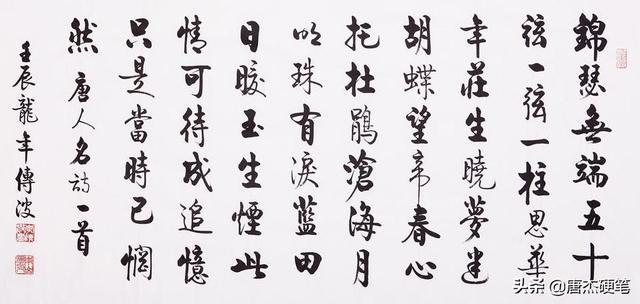 錦瑟無端五十
弦一弦一柱思華
年莊生曉夢迷
胡蝶望帝春心
托杜鵑滄海月
明珠有淚藍田
日暖玉生煙此
情可待成追憶
只是當時已惘
然 唐人名詩一首
壬辰龍年傳波
头条 @唐杰硬笔